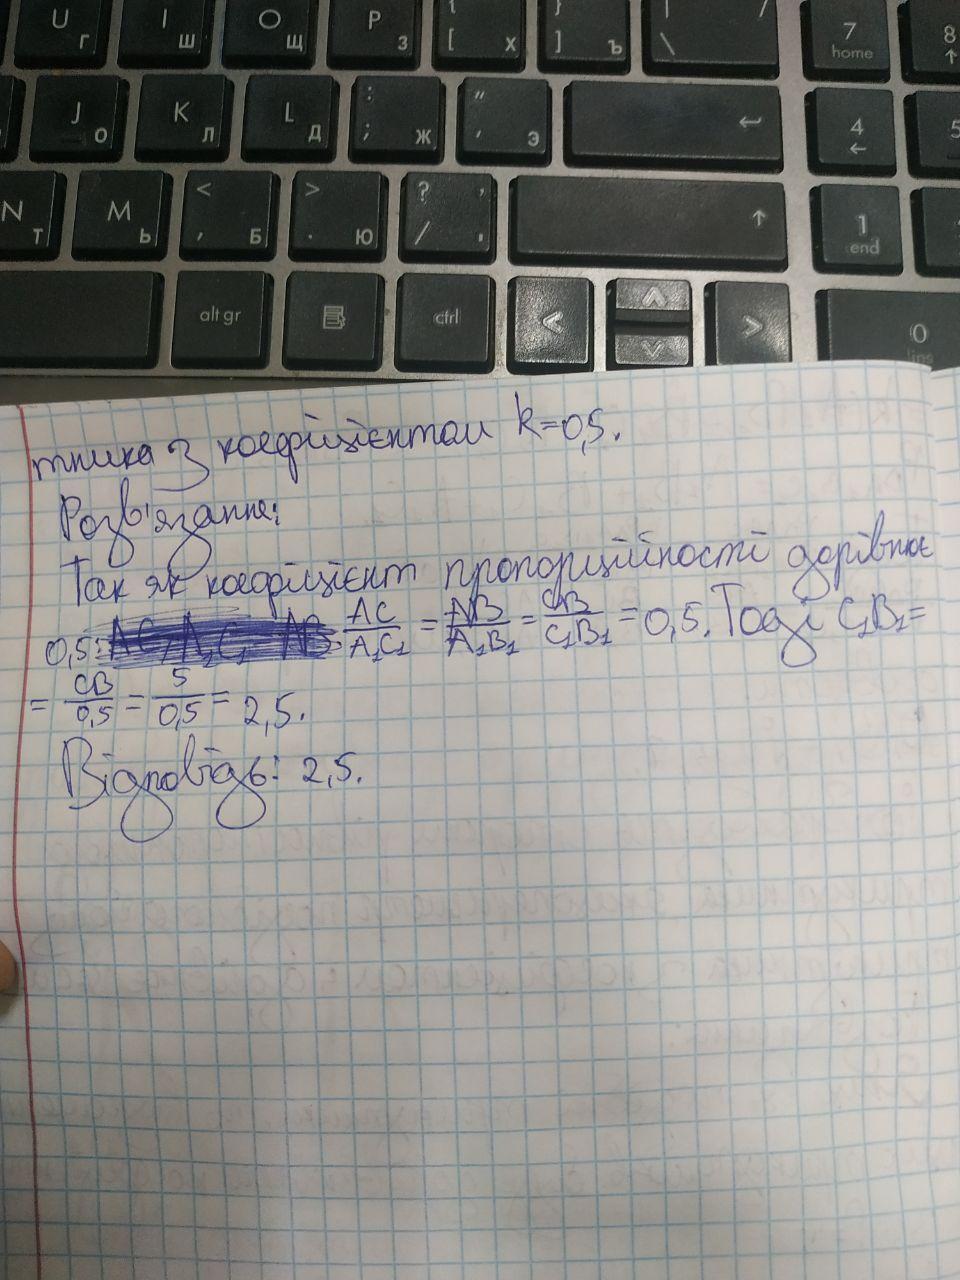 U Г I Ш O Щ P З { [ Х } ] Ъ | \ / 7 home 8 ↑
J О K Л L Д : ; Ж " ' Э ← 4 ← 5
N Т M Ь < , Б > . Ю ? / , . ↑ 1 end
alt gr ctrl < ^ v > 0 ins
тника з коефіцієнтом k=0,5.
Розв'язання:
Так як коефіцієнт пропорційності дорівнює
0,5: AC/A₁C₁ = AB/A₁B₁ = CB/C₁B₁ = 0,5. Тоді C₁B₁=
= CB/0,5 = 5/0,5 = 2,5.
Відповідь: 2,5.